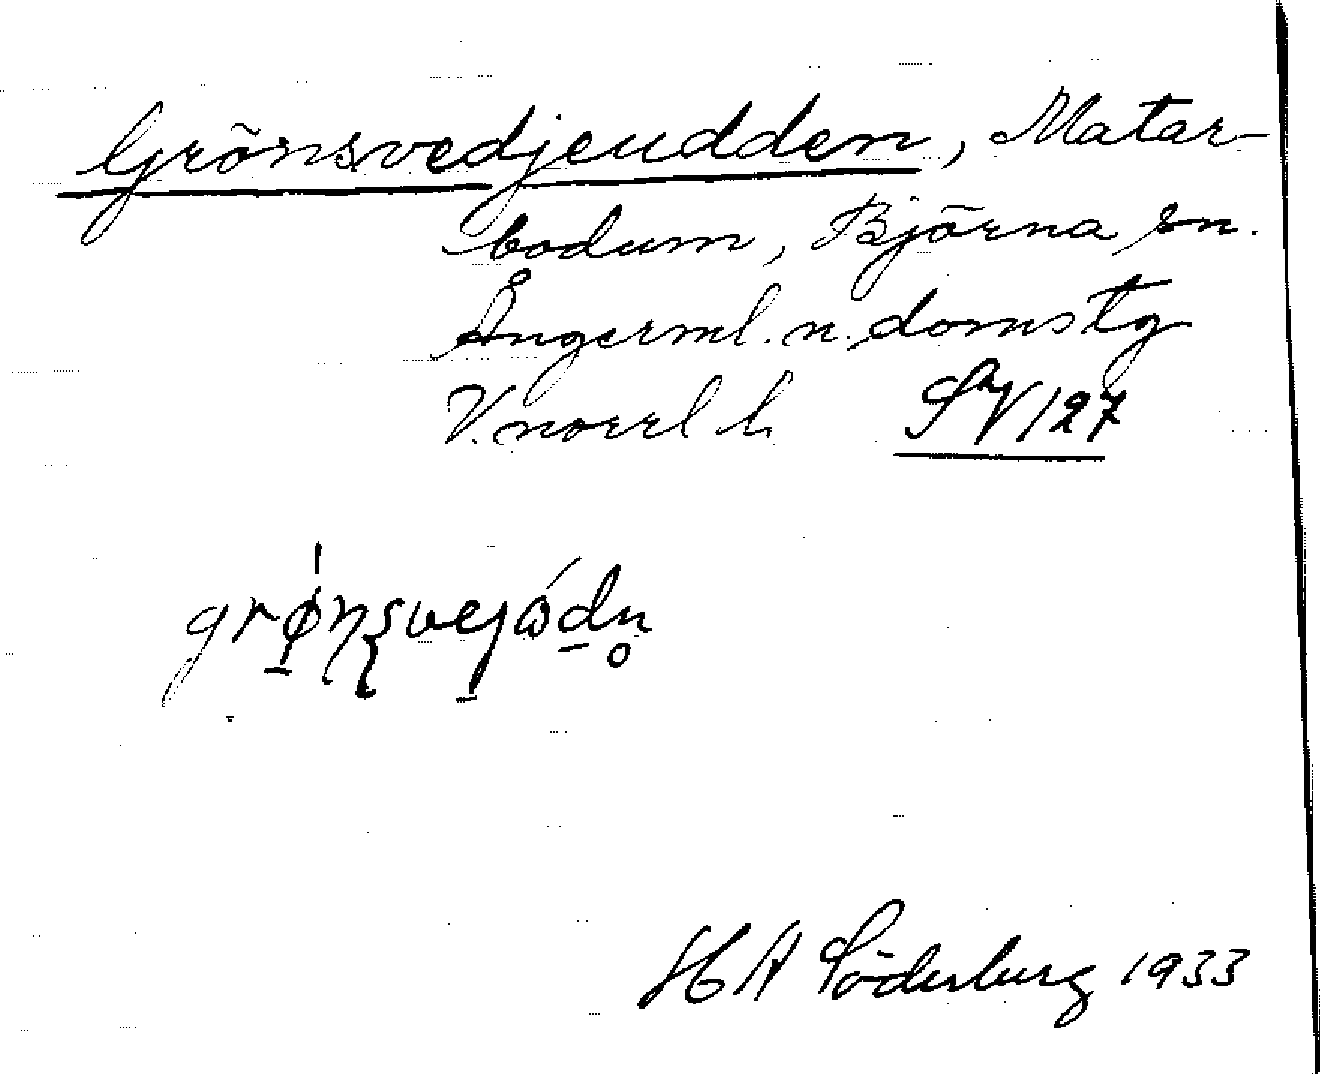 Grönsvedjeudden, Matar-
bodum, Björna sn.
Ångerml. n. domstg
V. norrl l. SV/27
H A Söderberg 1933